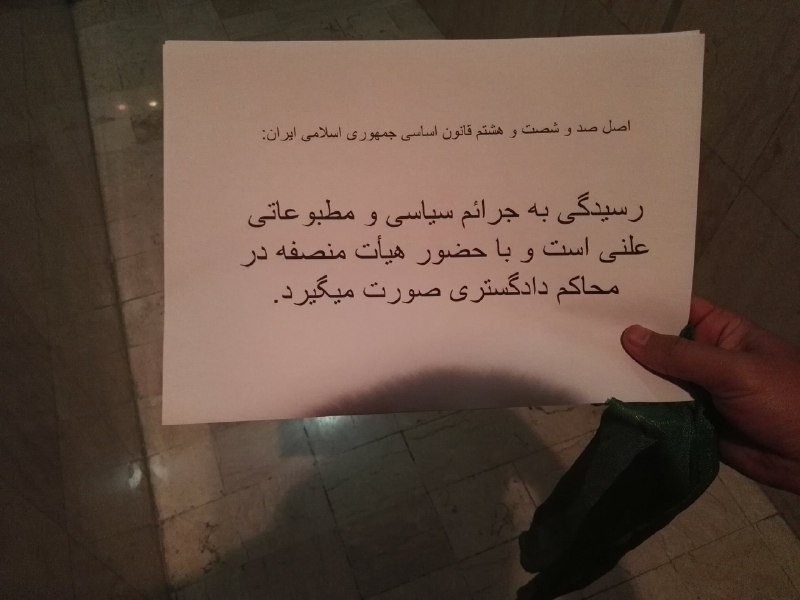 اصل صد و شصت و هشتم قانون اساسی جمهوری اسلامی ایران:
رسیدگی به جرائم سیاسی و مطبوعاتی
علنی است و با حضور هیأت منصفه در
محاکم دادگستری صورت میگیرد.